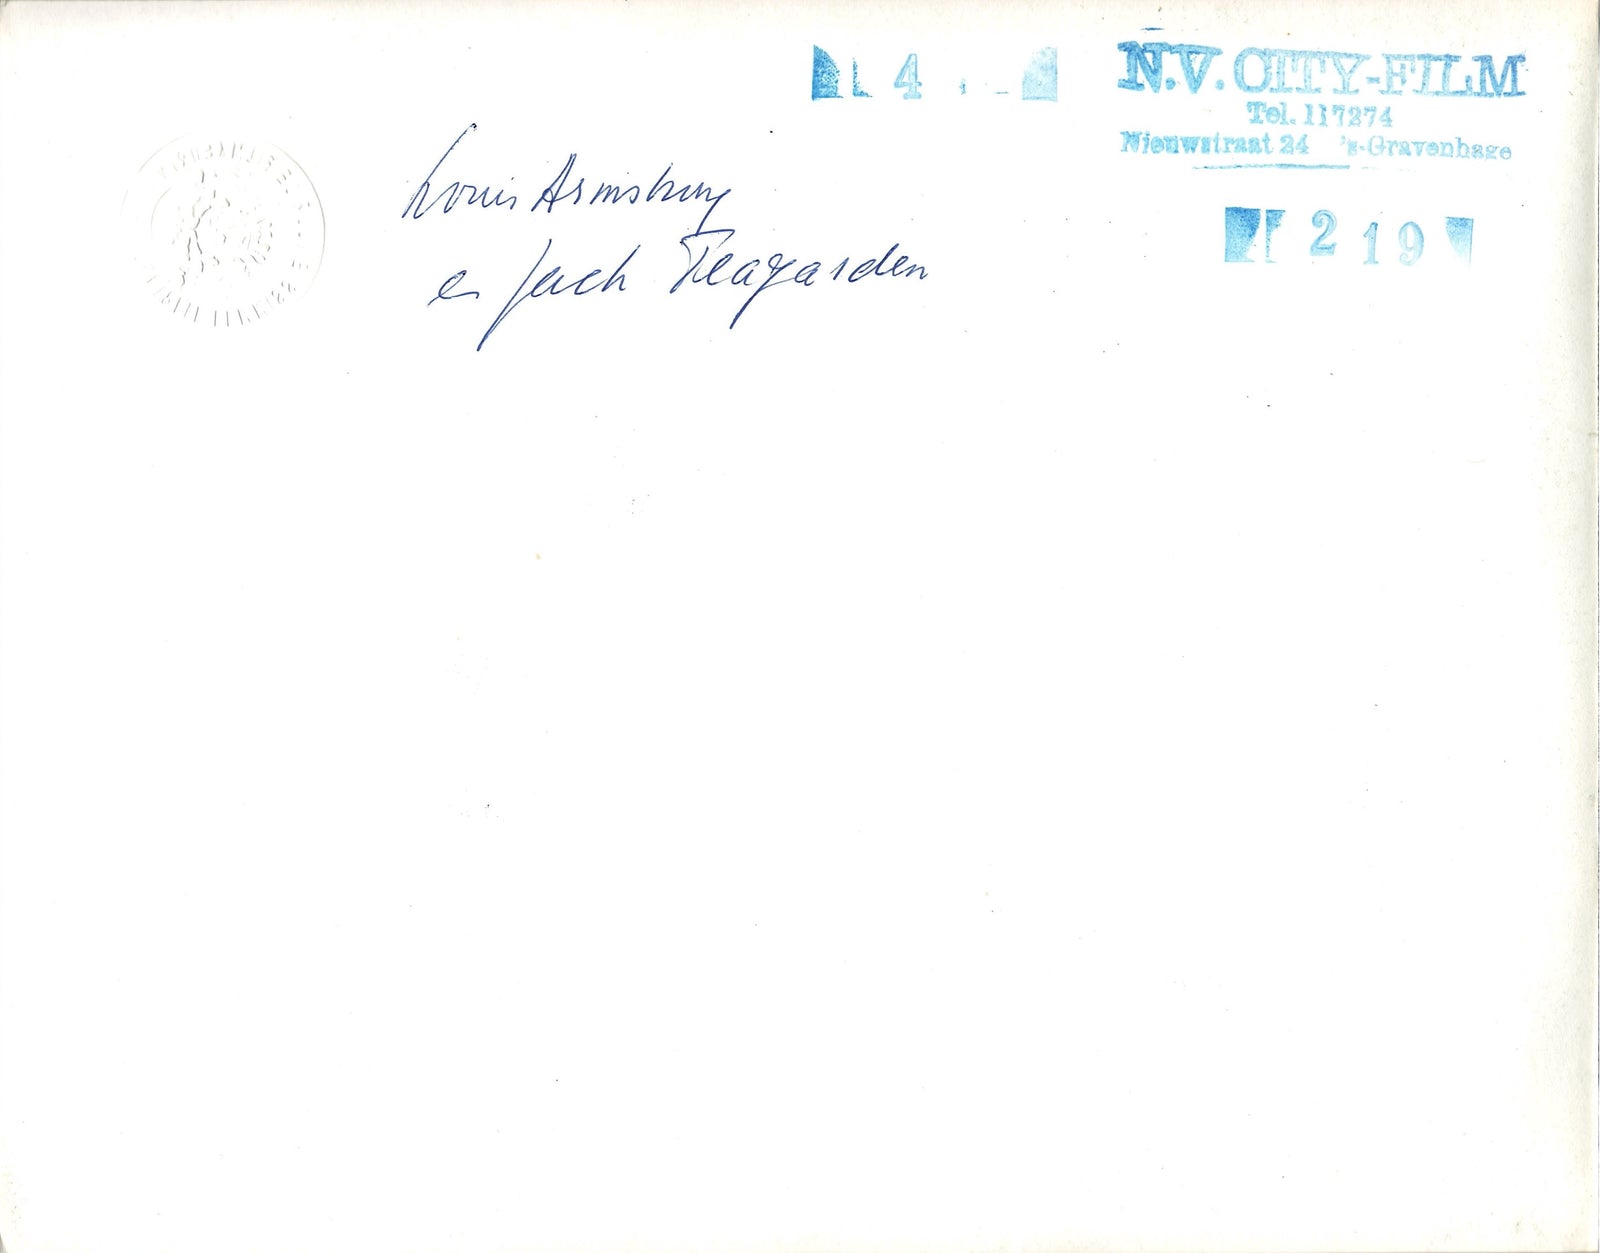 4
N.V. CITY-FILM
Tel. 117274
Nieuwstraat 24 's-Gravenhage
2 19
Louis Armstrong
en Jack Teagarden